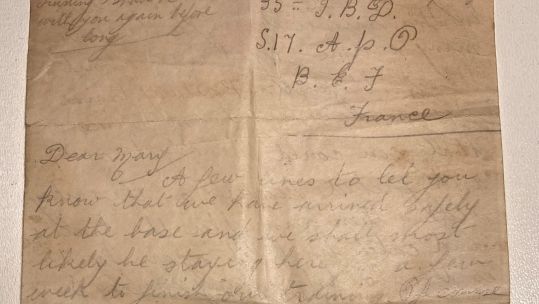 with you again before
long
35 I.B.D.
S.17. A.P.O
B.E.F
France
Dear Mary
A few lines to let you
know that we have arrived safely
at the base and we shall most
likely be staying here a few
week to finish our training